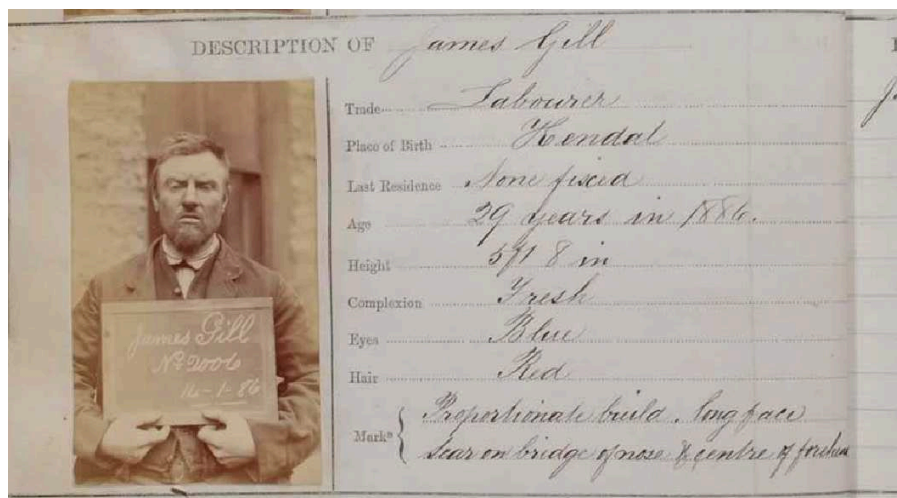 DESCRIPTION OF James Gill
Trade Labourer
Place of Birth Kendal
Last Residence None fixed
Age 29 years in 1886.
Height 5ft 8 in
Complexion Fresh
Eyes Blue
Hair Red
Marks Proportionate build. long face
Scar on bridge of nose & centre of forehead
James Gill
No 2006
14-1-86